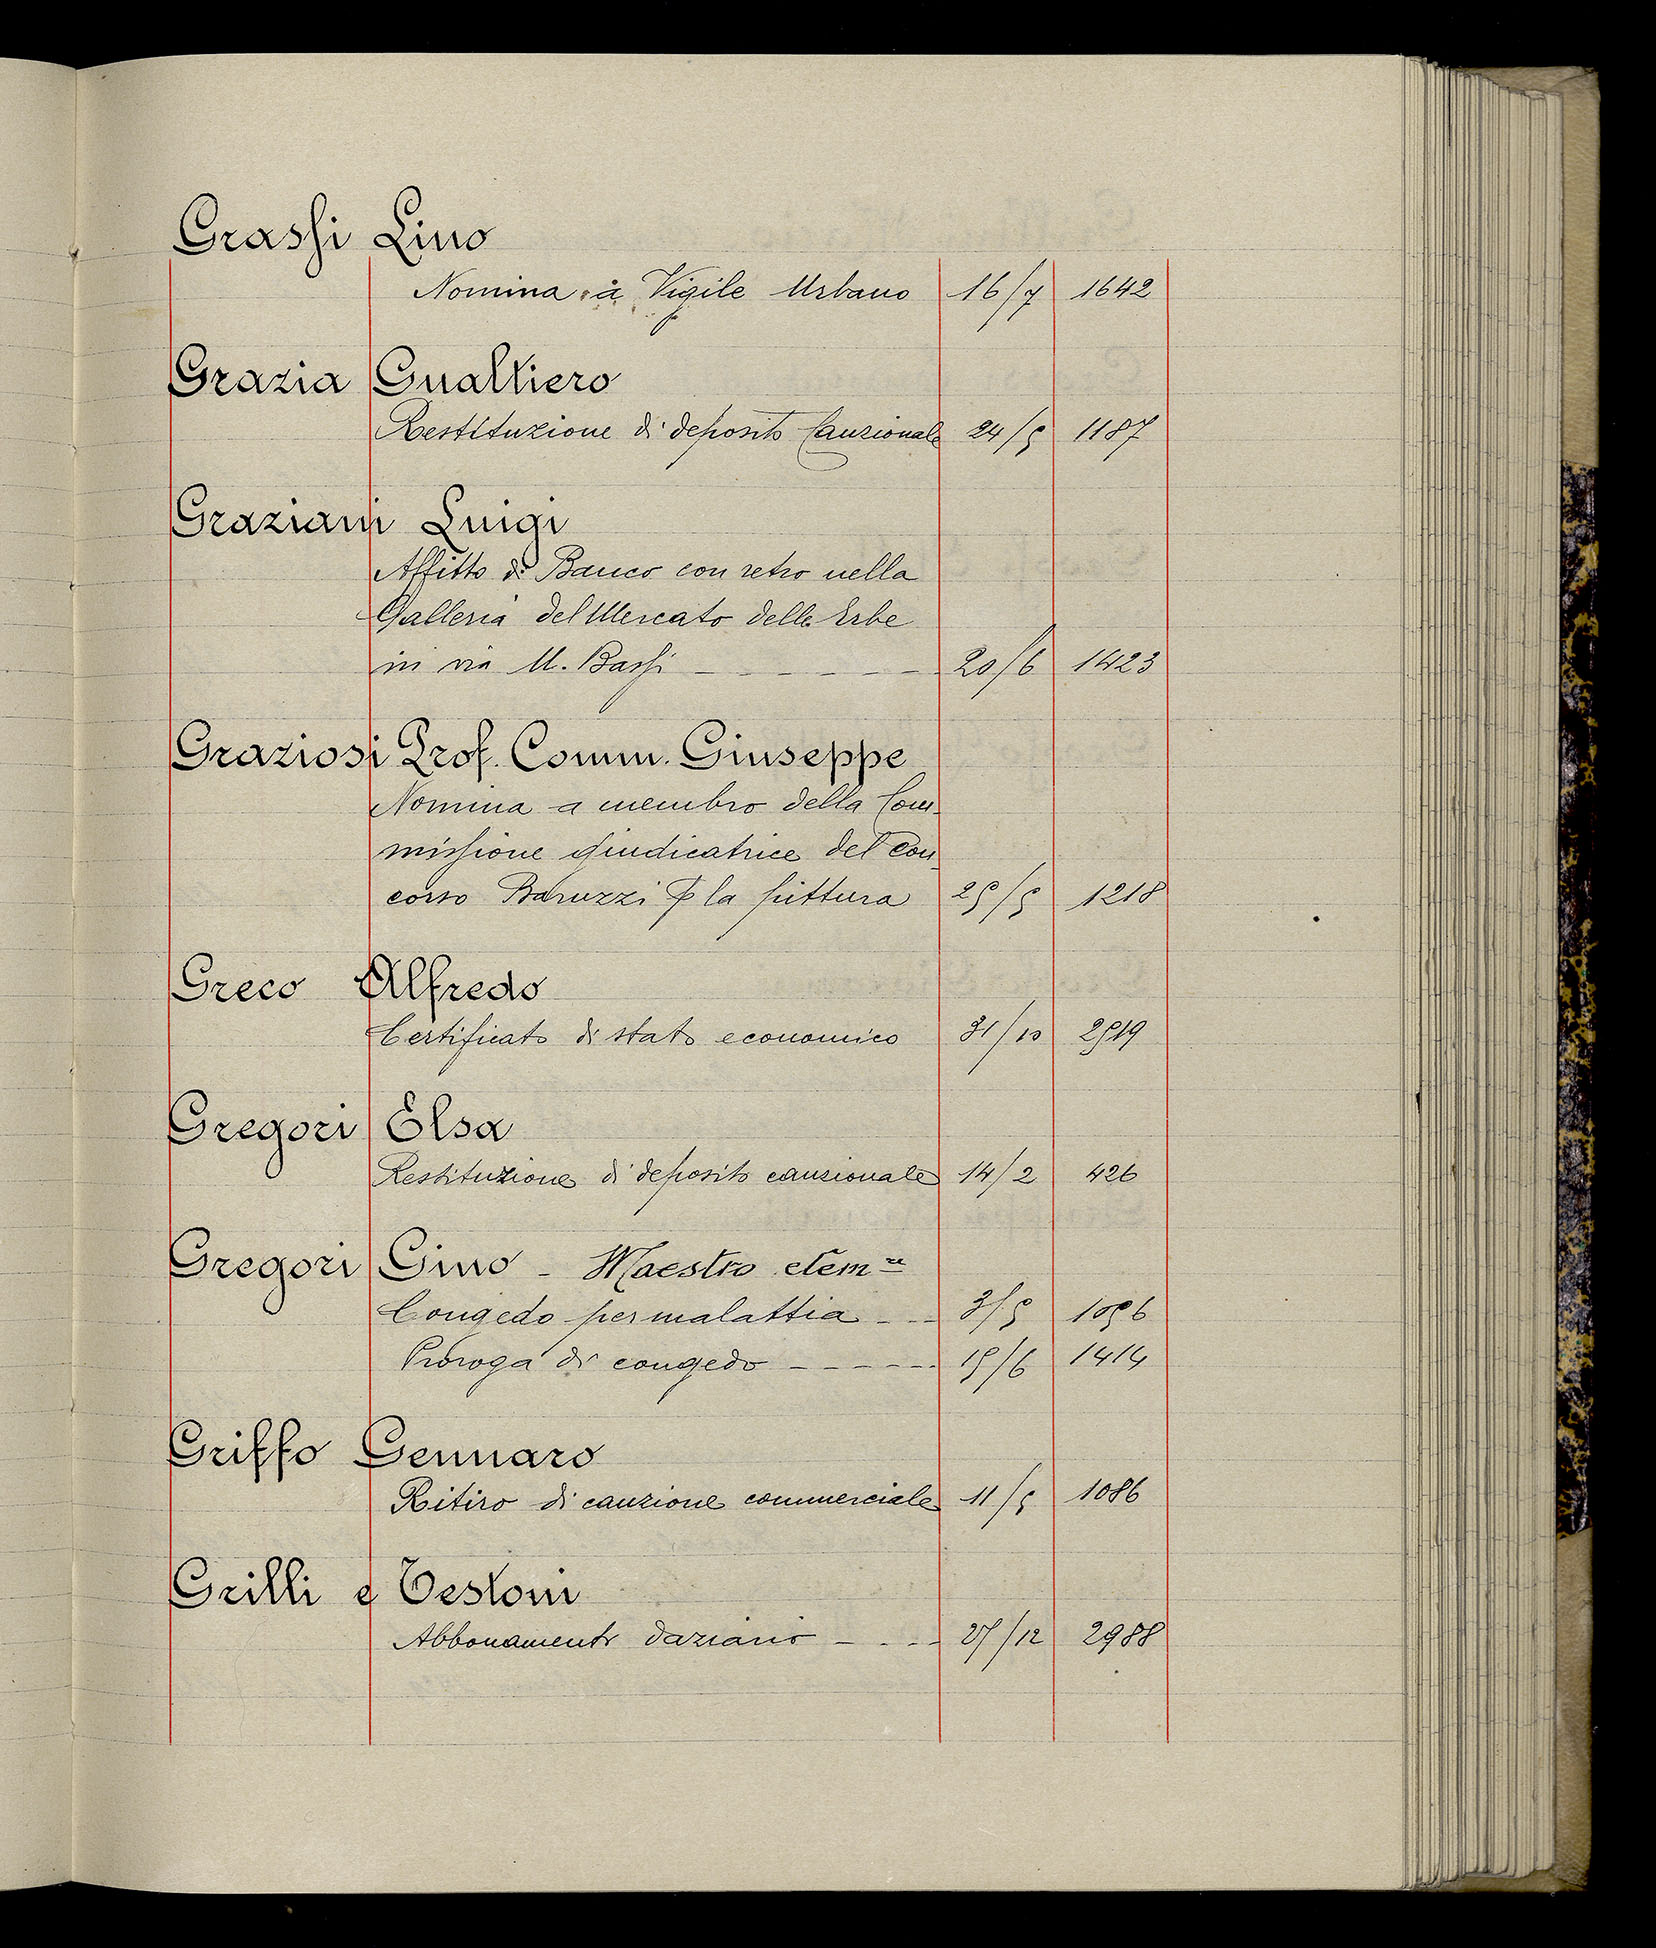 Grassi Lino
Nomina a Vigile Urbano 16/7 1642
Grazia Gualtiero
Restituzione di deposito Cauzionale 24/5 1187
Graziani Luigi
Affitto di Banco con retro nella
Galleria del Mercato delle Erbe
in via U. Bassi 20/6 1423
Graziosi Prof. Comm. Giuseppe
Nomina a membro della Com-
missione giudicatrice del Con-
corso Baruzzi per la pittura 25/5 1218
Greco Alfredo
Certificato di stato economico 31/10 2519
Gregori Elsa
Restituzione di deposito cauzionale 14/2 426
Gregori Gino - Maestro elem.re
Congedo per malattia 3/5 1056
Proroga di congedo 15/6 1414
Griffo Gennaro
Ritiro di cauzione commerciale 11/5 1086
Grilli e Testoni
Abbonamento daziario 27/12 2988